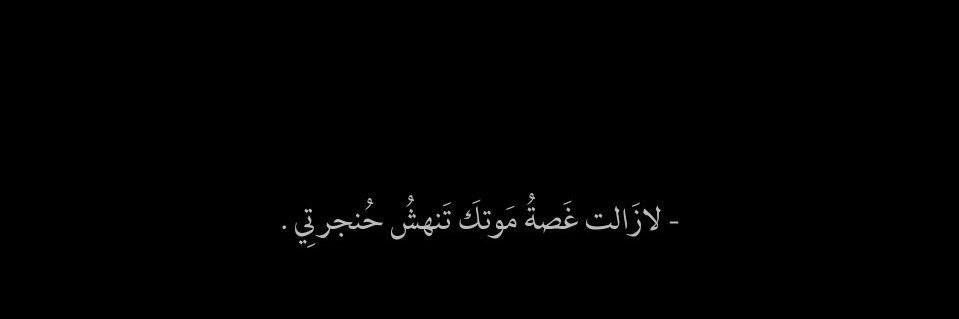 - لازَالت غَصةُ مَوتكَ تَنهشُ حُنجرتِي .